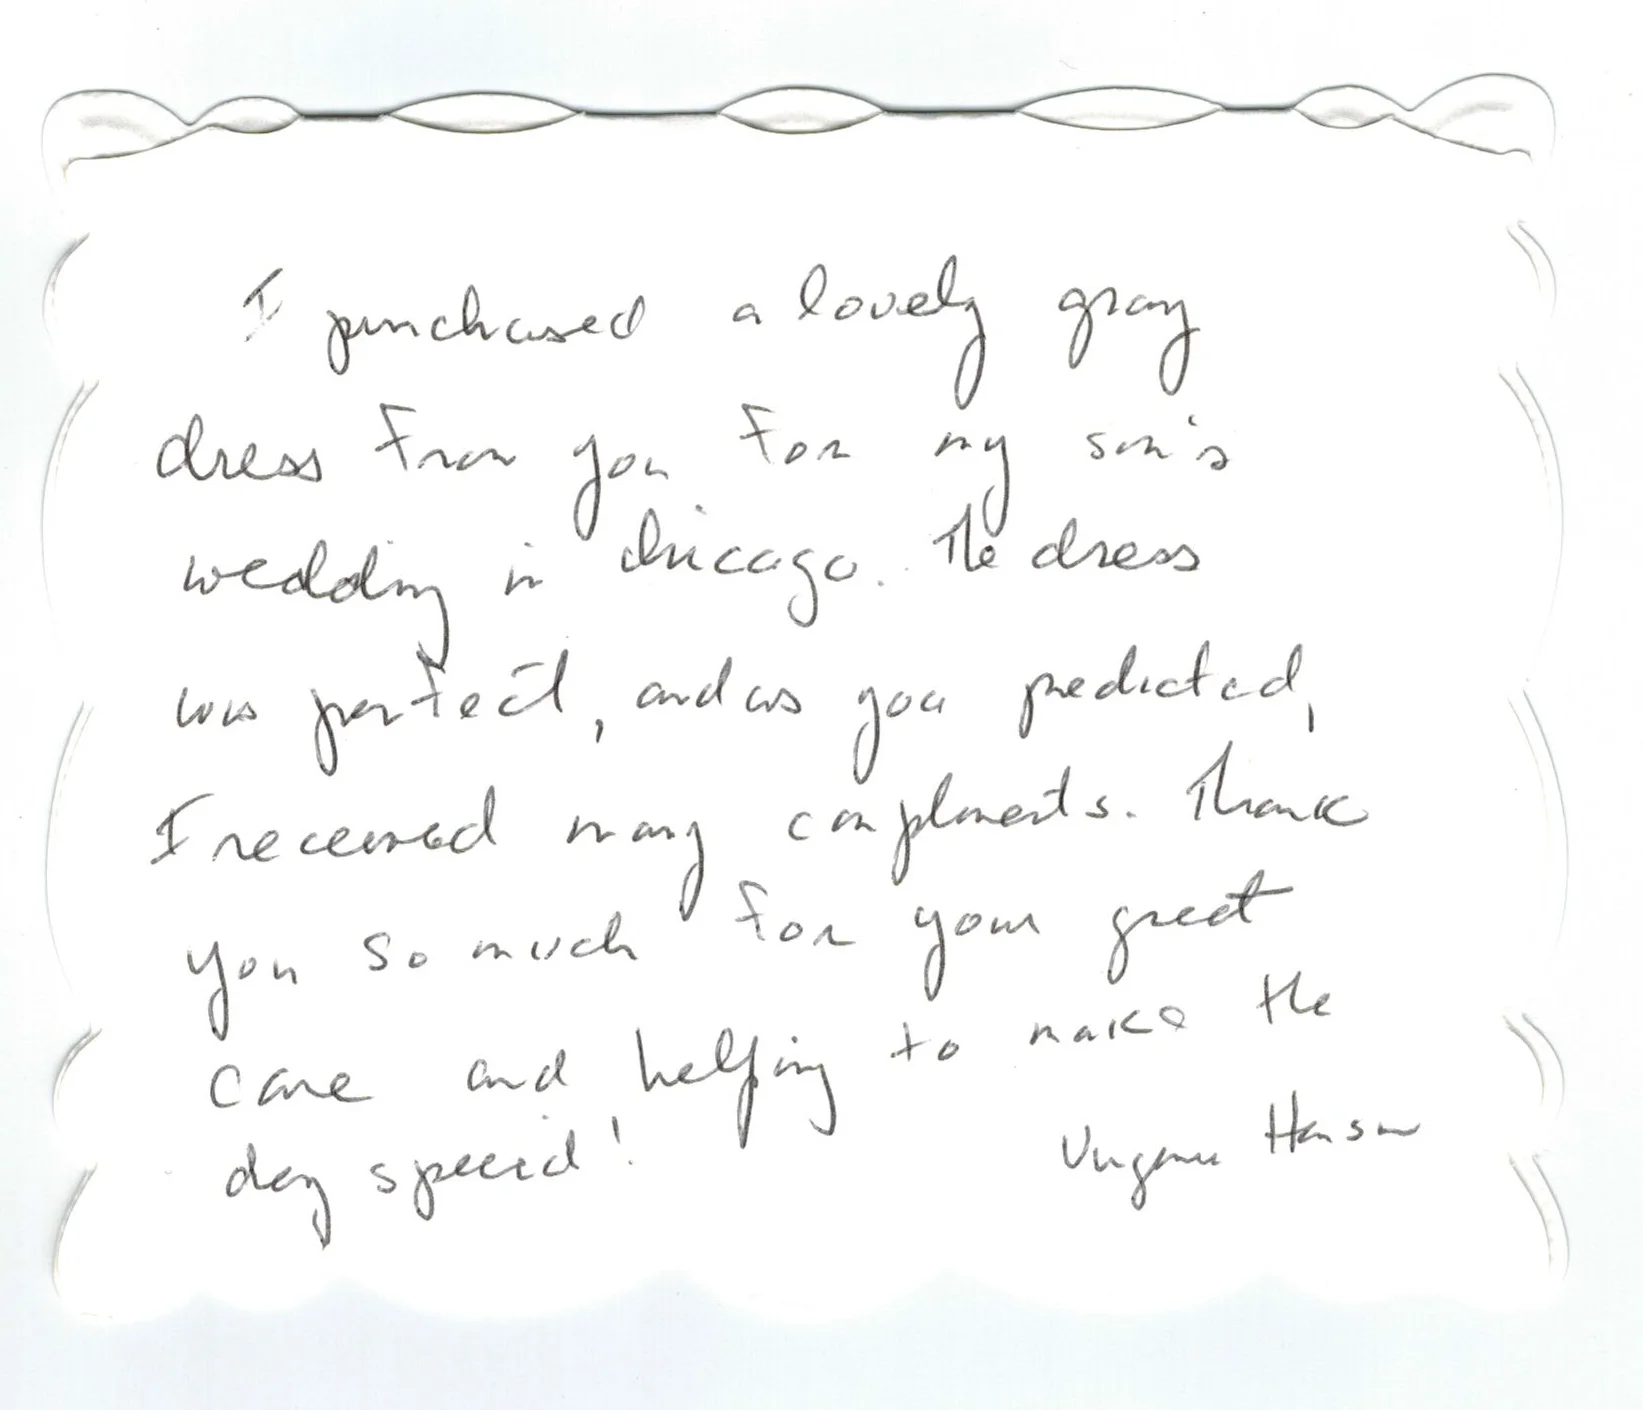 I purchased a lovely gray
dress from you for my son's
wedding in Chicago. The dress
was perfect, and as you predicted,
I received many compliments. Thank
you so much for your great
care and helping to make the
day special!
Virginia Hansen